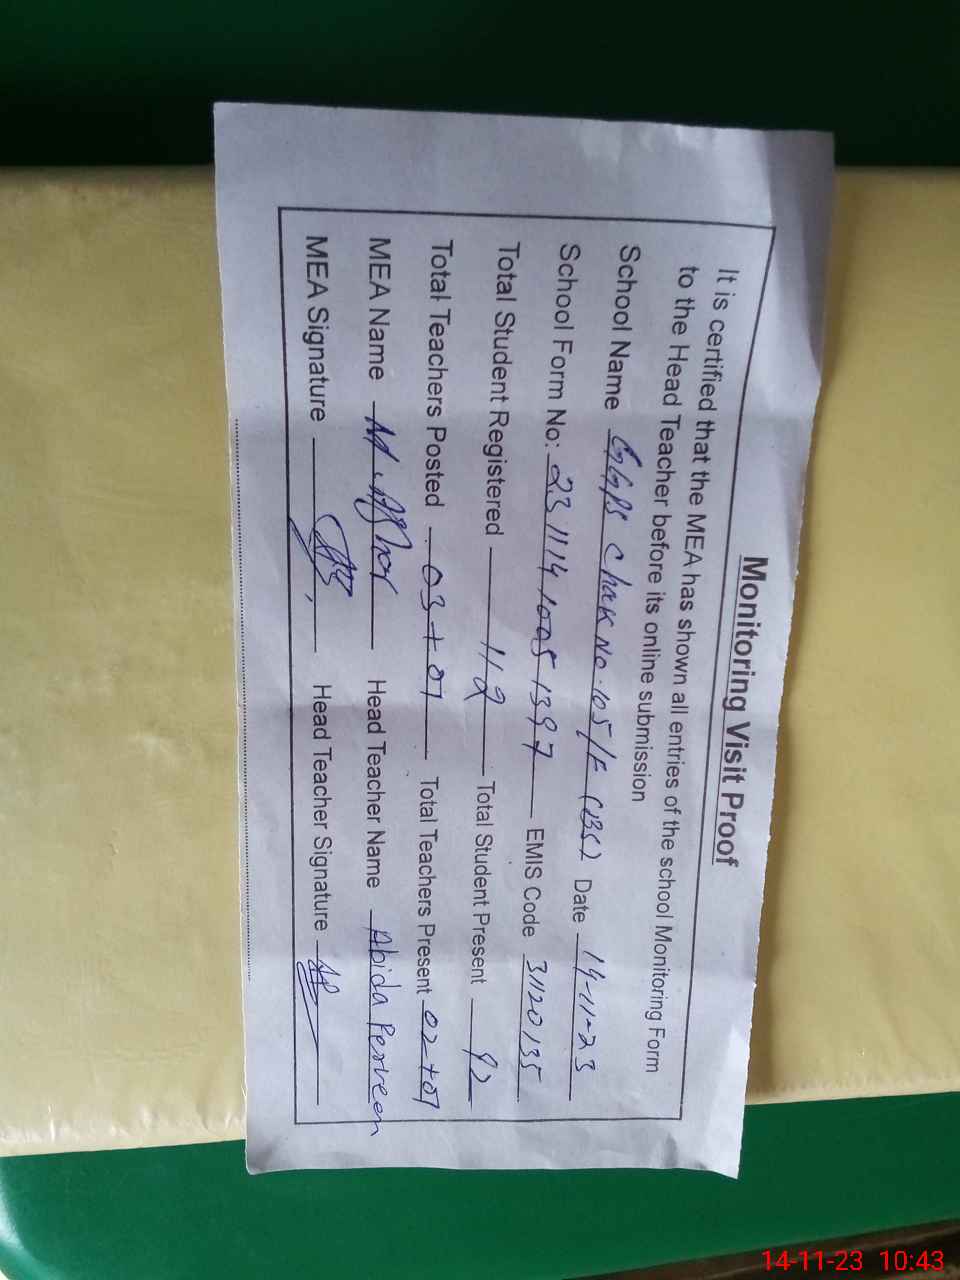 Monitoring Visit Proof
It is certified that the MEA has shown all entries of the school Monitoring Form
to the Head Teacher before its online submission
School Name GGPS Chak No. 105/F (135) Date 14-11-23
School Form No: 23 1114 1005 1397 EMIS Code 31120135
Total Student Registered 112 Total Student Present 92
Total Teachers Posted 03+01 Total Teachers Present 02+01
MEA Name Head Teacher Name Abida Perveen
MEA Signature Head Teacher Signature
14-11-23 10:43